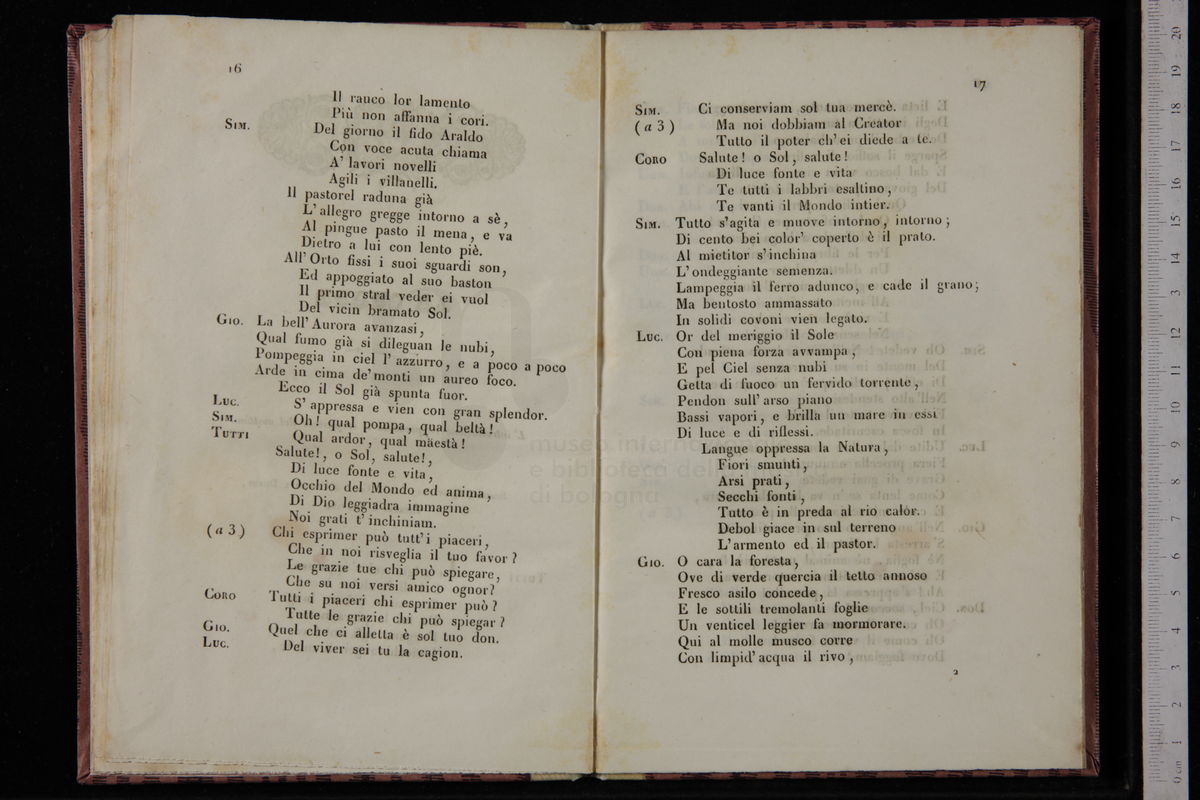 16
Il rauco lor lamento
Più non affanna i cori.
SIM. Del giorno il fido Araldo
Con voce acuta chiama
A' lavori novelli
Agili i villanelli.
Il pastorel raduna già
L'allegro gregge intorno a sè,
Al pingue pasto il mena, e va
Dietro a lui con lento piè.
All'Orto fissi i suoi sguardi son,
Ed appoggiato al suo baston
Il primo stral veder ei vuol
Del vicin bramato Sol.
GIO. La bell'Aurora avanzasi,
Qual fumo già si dileguan le nubi,
Pompeggia in ciel l'azzurro, e a poco a poco
Arde in cima de'monti un aureo foco.
Ecco il Sol già spunta fuor.
LUC. S'appressa e vien con gran splendor.
SIM. Oh! qual pompa, qual beltà!
TUTTI Qual ardor, qual màestà!
Salute!, o Sol, salute!,
Di luce fonte e vita,
Occhio del Mondo ed anima,
Di Dio leggiadra immagine
Noi grati t'inchiniam.
(a 3) Chi esprimer può tutt'i piaceri,
Che in noi risveglia il tuo favor?
Le grazie tue chi può spiegare,
Che su noi versi amico ognor?
CORO Tutti i piaceri chi esprimer può?
Tutte le grazie chi può spiegar?
GIO. Quel che ci alletta è sol tuo don.
LUC. Del viver sei tu la cagion.
17
SIM. Ci conserviam sol tua mercè.
(a 3) Ma noi dobbiam al Creator
Tutto il poter ch'ei diede a te.
CORO Salute! o Sol, salute!
Di luce fonte e vita
Te tutti i labbri esaltino,
Te vanti il Mondo intier.
SIM. Tutto s'agita e muove intorno, intorno;
Di cento bei color' coperto è il prato.
Al mietitor s'inchina
L'ondeggiante semenza.
Lampeggia il ferro adunco, e cade il grano;
Ma bentosto ammassato
In solidi covoni vien legato.
LUC. Or del meriggio il Sole
Con piena forza avvampa,
E pel Ciel senza nubi
Getta di fuoco un fervido torrente,
Pendon sull'arso piano
Bassi vapori, e brilla un mare in essi
Di luce e di riflessi.
Langue oppressa la Natura,
Fiori smunti,
Arsi prati,
Secchi fonti,
Tutto è in preda al rio calor.
Debol giace in sul terreno
L'armento ed il pastor.
GIO. O cara la foresta,
Ove di verde quercia il tetto annoso
Fresco asilo concede,
E le sottili tremolanti foglie
Un venticel leggier fa mormorare.
Qui al molle musco corre
Con limpid'acqua il rivo,
2